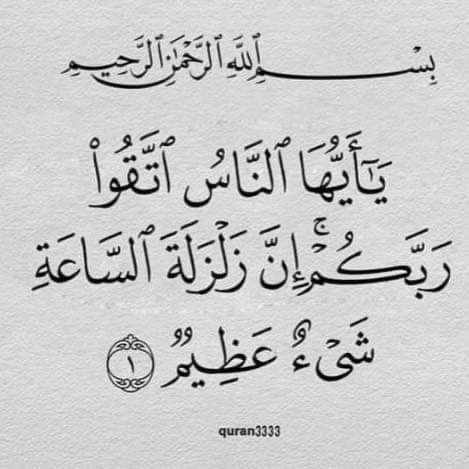 بِسْمِ ٱللَّهِ ٱلرَّحْمَٰنِ ٱلرَّحِيمِ
يَٰٓأَيُّهَا ٱلنَّاسُ ٱتَّقُوا۟
رَبَّكُمْ ۚ إِنَّ زَلْزَلَةَ ٱلسَّاعَةِ
شَىْءٌ عَظِيمٌ ١
quran3333